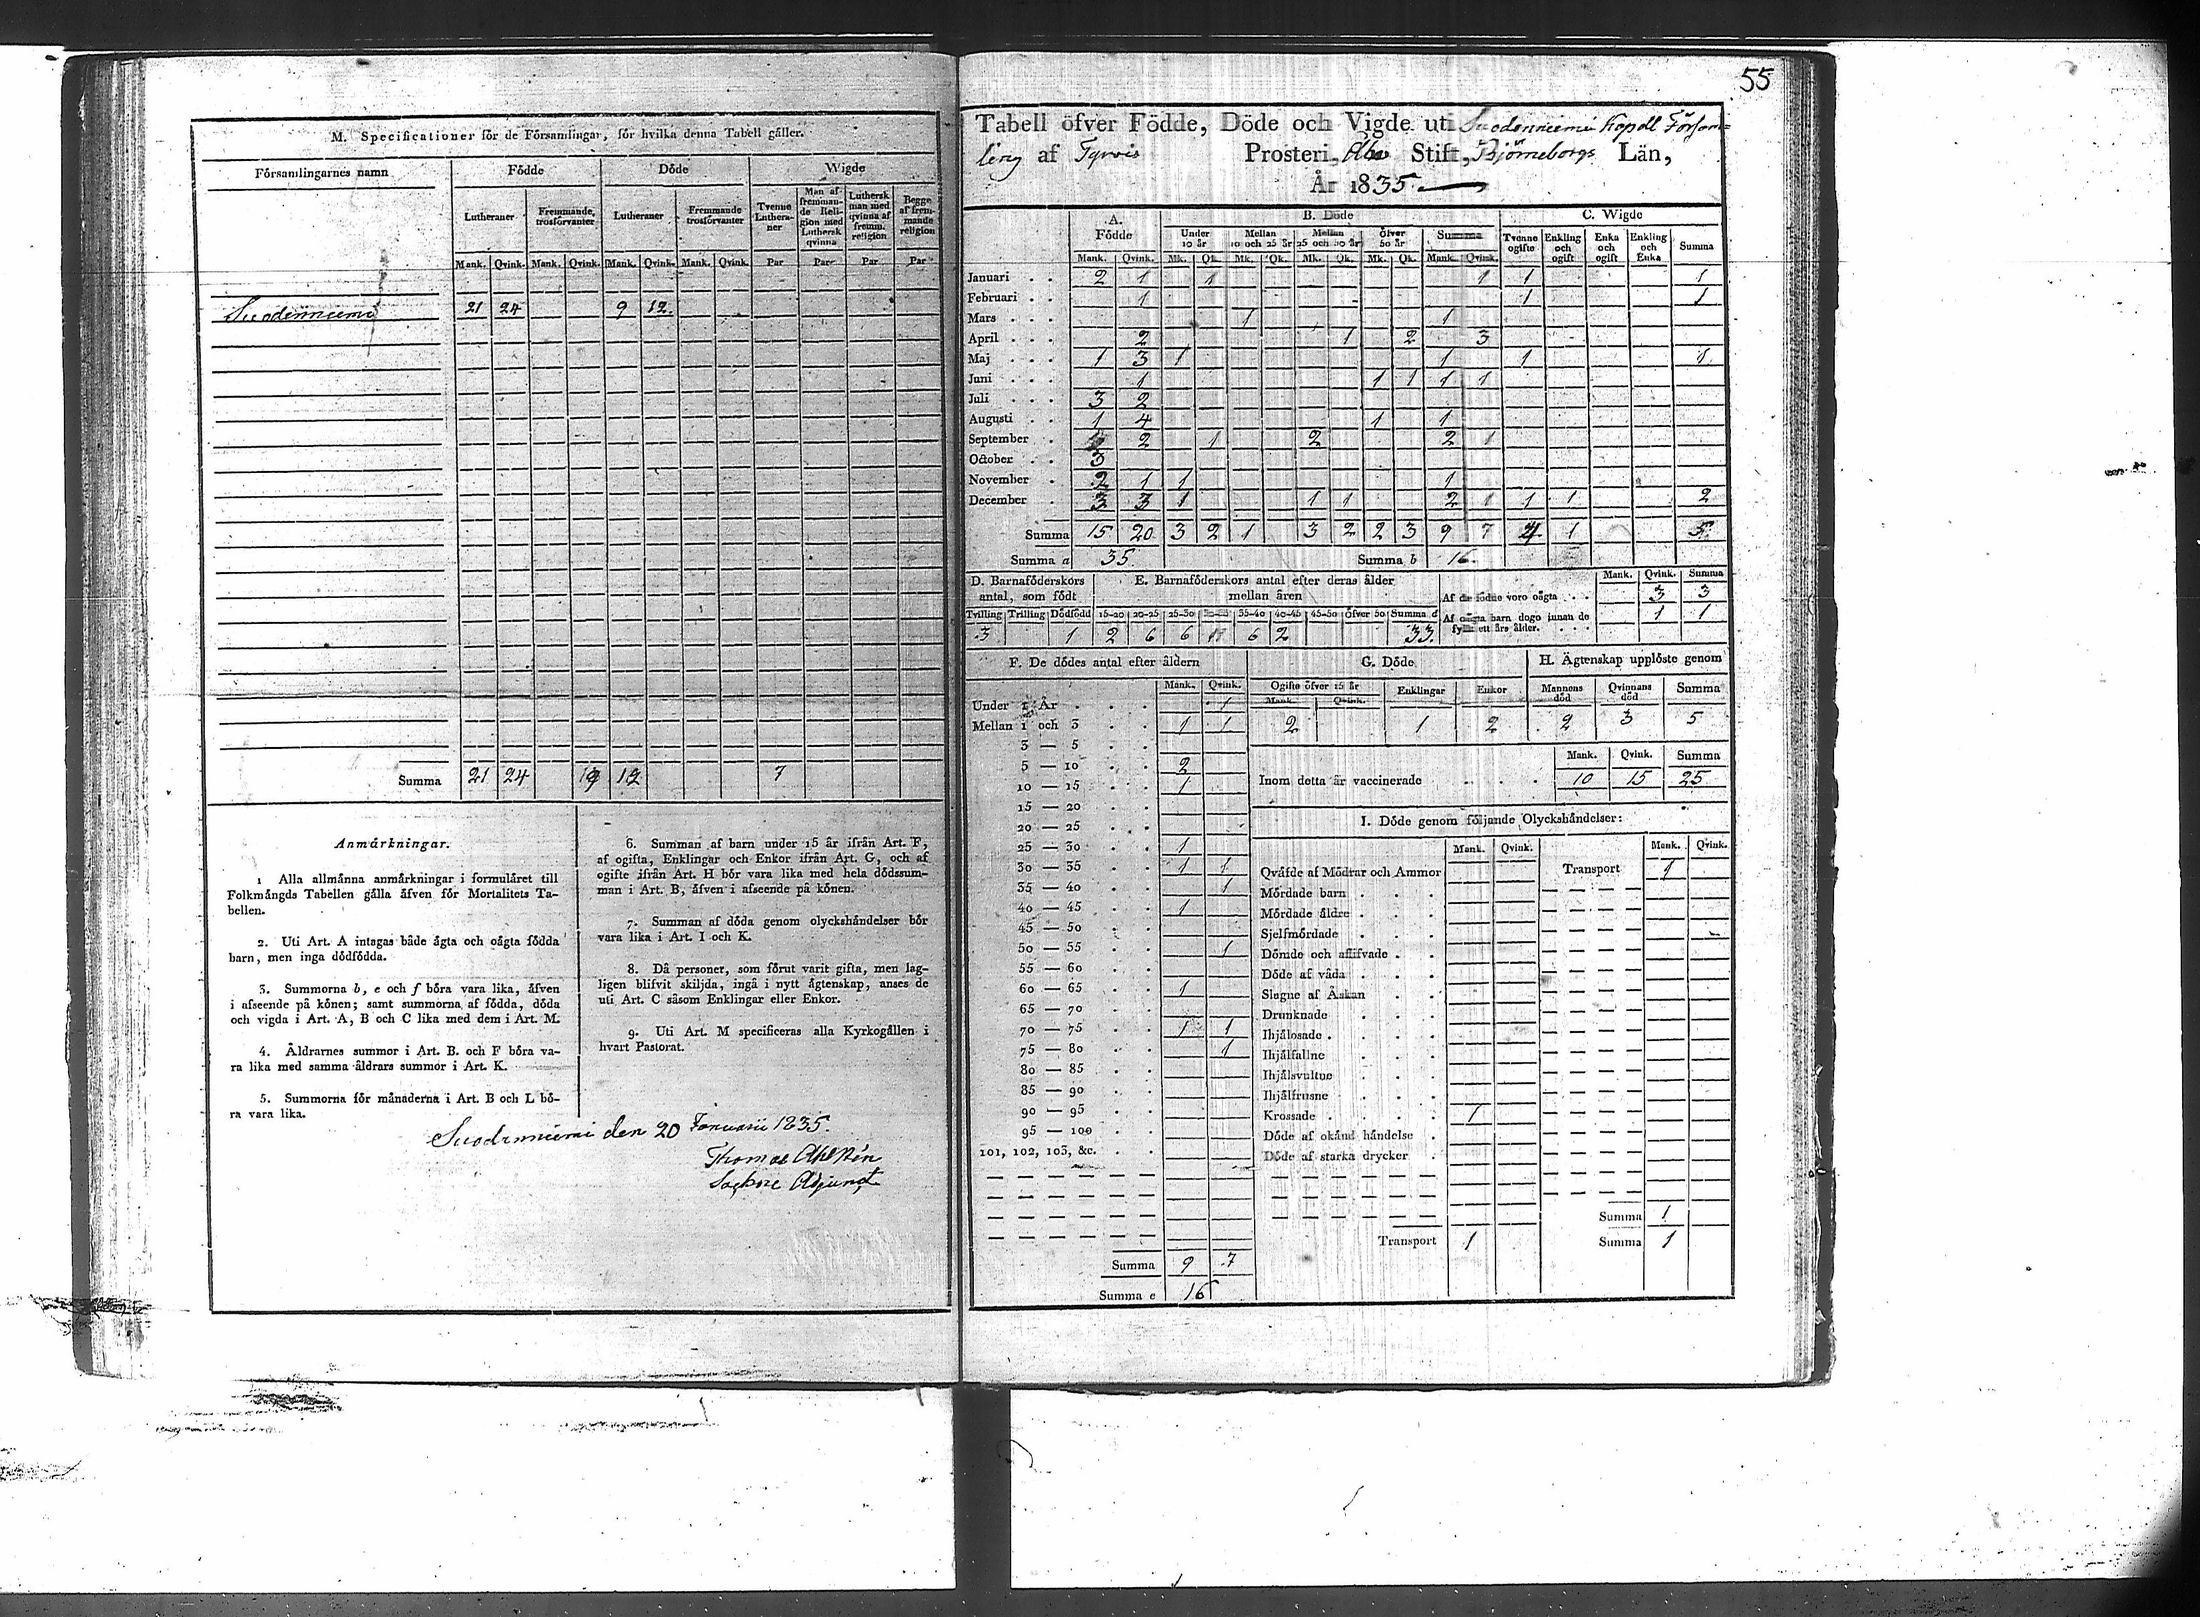 M. Specificationer för de Församlingar, för hvilka denna Tabell gäller.
Församlingarnes namn | Födde | Döde | Wigde
Lutheraner | Fremmande trosförvanter | Lutheraner | Fremmande trosförvanter | Tvenne Lutheraner | Man af fremmande Religion med Luthersk qvinna | Luthersk man med qvinna af fremm. religion | Begge af fremmande religion
Mank. Qvink. Mank. Qvink. Mank. Qvink. Mank. Qvink. Par Par Par Par
Suodenniemi 21 24 9 12
Summa 21 24 12 7
Anmärkningar.
1 Alla allmänna anmärkningar i formuläret till
Folkmängds Tabellen gälla äfven för Mortalitets Ta-
bellen.
2. Uti Art. A intagas både ägta och oägta födda
barn, men inga dödfödda.
3. Summorna b, e och f böra vara lika, äfven
i afseende på könen; samt summorna af födda, döda
och vigda i Art. A, B och C lika med dem i Art. M.
4. Åldrarnes summor i Art. B. och F böra va-
ra lika med samma åldrars summor i Art. K.
5. Summorna för månaderna i Art. B och L bö-
ra vara lika.
6. Summan af barn under 15 år ifrån Art. F,
af ogifta, Enklingar och Enkor ifrån Art. G, och af
ogifte ifrån Art. H bör vara lika med hela dödssum-
man i Art. B, äfven i afseende på könen.
7. Summan af döda genom olyckshändelser bör
vara lika i Art. I och K.
8. Då personer, som förut varit gifta, men lag-
ligen blifvit skiljda, ingå i nytt ägtenskap, anses de
uti Art. C såsom Enklingar eller Enkor.
9. Uti Art. M specificeras alla Kyrkogällen i
hvart Pastorat.
Suodenniemi den 20 Januarii 1835.
Thomas
Sockne Adjunct
55
Tabell öfver Födde, Döde och Vigde uti Suodenniemi Kapell Försam=
ling af Tyrvis Prosteri, Åbo Stift, Björneborgs Län,
År 1835
A. Födde | B. Döde | C. Wigde
Under 10 år | Mellan 10 och 25 år | Mellan 25 och 50 år | Öfver 50 år | Summa | Tvenne ogifte | Enkling och ogift | Enka och ogift | Enkling och Enka | Summa
Mank. Qvink. Mk. Qk. Mk. Qk. Mk. Qk. Mk. Qk. Mank. Qvink.
Januari 2 1 1 1 1 1
Februari 1 1 1
Mars 1 1
April 2 1 2 3
Maj 1 3 1 1 1 1
Juni 1 1 1 1 1
Juli 3 2
Augusti 1 4 1 1
September 2 1 2 2 1
October 3
November 2 1 1 1
December 3 3 1 1 1 2 1 1 1 2
Summa 15 20 3 2 1 3 2 2 3 9 7 4 1 5
Summa a 35 Summa b 16.
D. Barnaföderskors antal, som födt | E. Barnaföderskors antal efter deras ålder mellan åren | Mank. Qvink. Summa
Tvilling Trilling Dödfödd 15-20 20-25 25-30 30-35 35-40 40-45 45-50 öfver 50 Summa d
3 1 2 6 6 11 6 2 33.
Af de födde voro oägta 3 3
Af oägta barn dogo innan de fyllt ett års ålder. 1 1
F. De dödes antal efter åldern
Mank. Qvink.
Under 1 År 1
Mellan 1 och 3 1 1
3 — 5
5 — 10 2
10 — 15 1
15 — 20
20 — 25
25 — 30 1
30 — 35 1 1
35 — 40 1
40 — 45 1
45 — 50
50 — 55 1
55 — 60
60 — 65 1
65 — 70
70 — 75 1 1
75 — 80 1
80 — 85
85 — 90
90 — 95
95 — 100
101, 102, 103, &c.
Summa 9 7
Summa e 16
G. Döde | H. Ägtenskap upplöste genom
Ogifte öfver 15 år | Enklingar | Enkor | Mannens död | Qvinnans död | Summa
Mank. Qvink.
2 1 2 2 3 5
Mank. Qvink. Summa
Inom detta år vaccinerade 10 15 25
I. Döde genom följande Olyckshändelser:
Mank. Qvink. | Mank. Qvink.
Qväfde af Mödrar och Ammor | Transport 1
Mördade barn
Mördade äldre
Sjelfmördade
Dömde och aflifvade
Döde af våda
Slagne af Åskan
Drunknade
Ihjälosade
Ihjälfallne
Ihjälsvultne
Ihjälfrusne
Krossade 1
Döde af okänd händelse
Döde af starka drycker
Summa 1
Transport 1 Summa 1